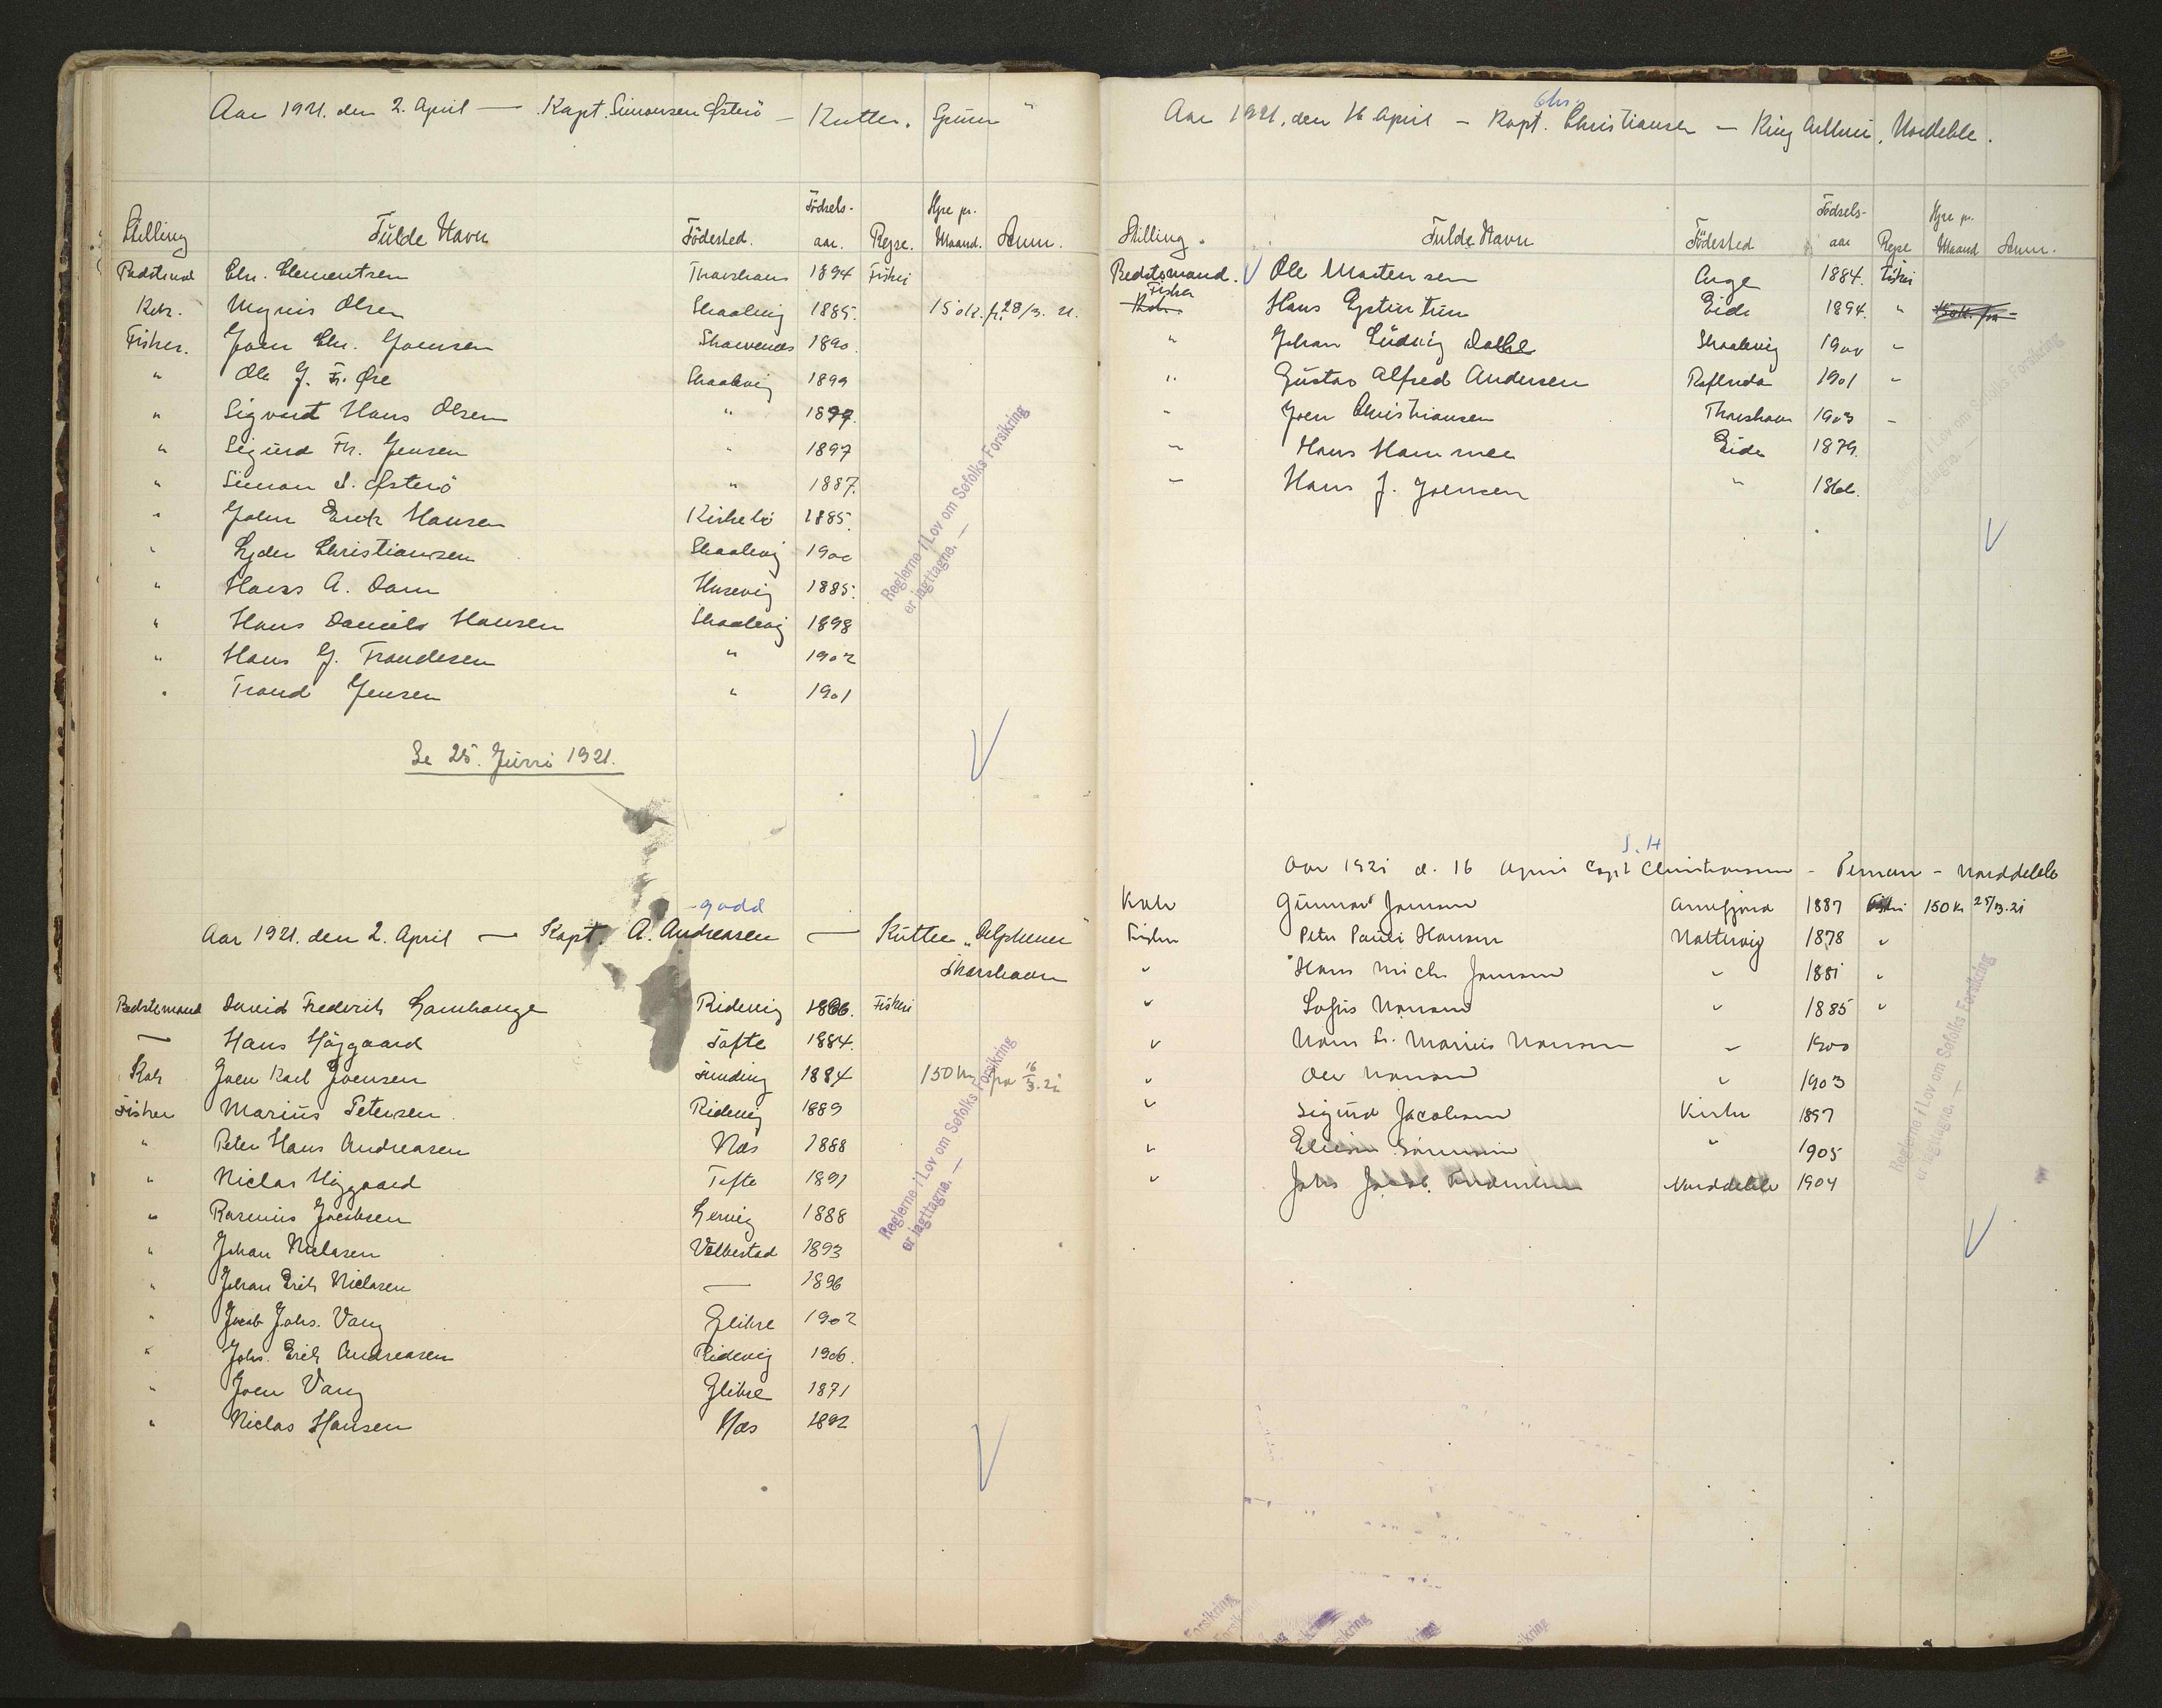 Aar 1921. den 2. April — Kapt. Simonsen Østerö — Kutter "Spurn"
Stilling Fulde Navn Födested. Födsels-aar. Rejse. Hyre pr. Maaned. Anm.
Bedstemand Chr. Clementsen Thorshavn 1894 Fiskeri
Kok. Magnus Olsen Skaalevig 1885. 150 k. fr. 28/3. 21.
Fisker. Joen Chr. Joensen 1890
" Ole J. Fr. Øre Skaalevig 1899
" Sigvard Hans Olsen " 1899.
" Sigurd Fr. Jensen " 1897
" Simon S. Østerö " 1887.
" John Erik Hansen Kirkebö 1885.
" Lyder Christiansen Skaalevig 1900
" Hans A. Dam Husevig 1885.
" Hans Daniels Hansen Skaalevig 1898
" Hans J. Trondesen " 1902
" Trond Jensen " 1901
Reglerne i Lov om Søfolks Forsikring
er iagttagne. —
Se 25. Juni 1921.
godd
Aar 1921. den 2. April — Kapt. A. Andreasen — Kutter „Alpheus"
Thorshavn
Bedstemand David Frederik Lamhauge Ridevig 1886. Fiskeri
— Hans Höjgaard Tofte 1884.
Kok Joen Karl Joensen Funding 1884 150 Kr. fra 16/3. 21
Fisker Marius Petersen Ridevig 1889
" Peter Hans Andreasen Næs 1888
" Niclas Höjgaard Tofte 1891
" Rasmus Jacobsen Lervig 1888
" Johan Niclasen Velbestad 1893
" Johan Erik Niclasen — 1896
" Jacob Johs. Vang Glibre 1902
" Johs. Erik Andreasen Ridevig 1906.
" Joen Vang Glibre 1871
" Niclas Hansen Næs 1892
Reglerne i Lov om Søfolks Forsikring
er iagttagne. —
Chr.
Aar 1921. den 16 April — Kapt. Christiansen — King Arthur, Norddeble.
Stilling. Fulde Navn Födested Födsels-aar Rejse Hyre pr. Maaned Anm.
Bedstemand. Ole Mortensen Ange 1884. Fiskeri
Kok Fisker Hans Eide 1894. " 150 k. fra
" Johan Ludvig Dalhl Skaalevig 1900 "
" Gustav Alfred Andersen 1901 "
" Joen Christiansen Thorshavn 1903 "
" Hans Hammer Eide 1879.
" Hans J. Joensen " 1866.
Reglerne i Lov om Søfolks Forsikring
er iagttagne. —
J. H
Aar 1921 d. 16 April Capt Christiansen — — Norddeble
Kok Gunnar Joensen Arnefjord 1887 Fiskeri 150 Kr 25/3.21
Fisker Peter Pauli Hansen Nattervig 1878 "
" Hans Mich. Joensen " 1881 "
" Sofus Hansen " 1885 "
" Hans Marius Hansen " 1900
" Ole Hansen " 1903
" Sigurd Jacobsen Kirke 1897
" " 1905
" Johs Jacob Norddeble 1904
Reglerne i Lov om Søfolks Forsikring
er iagttagne. —
Forsikring